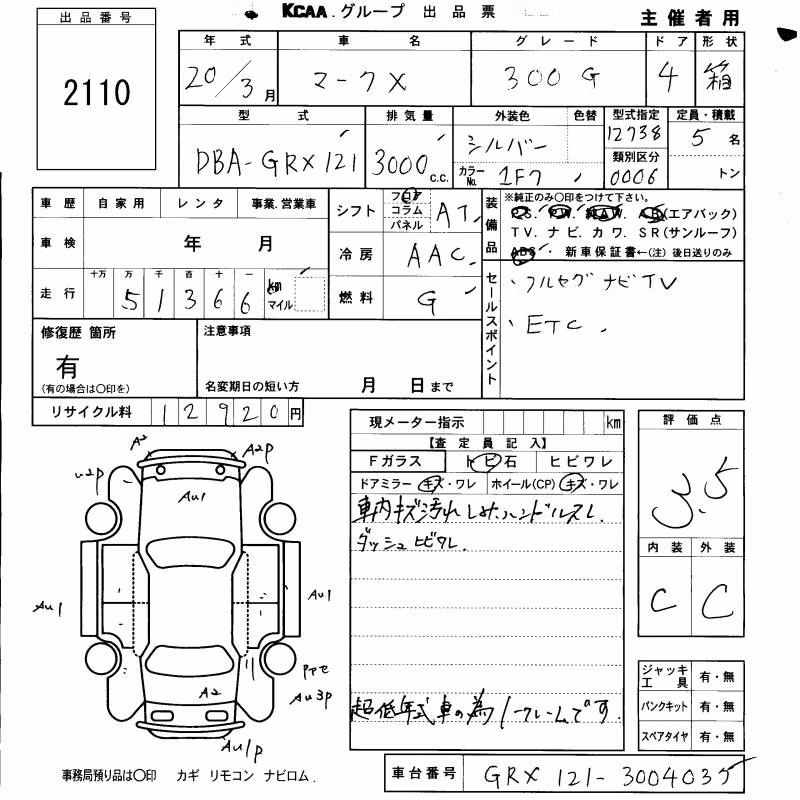 KCAA.グループ 出品票
主催者用
出品番号
2110
年式 車名 グレード ドア 形状
20/3月 マークX 300G 4 箱
型式 排気量 外装色 色替 型式指定 定員・積載
DBA-GRX121 3000c.c. シルバー 12738 5名
カラーNo. 1F7 類別区分 0006 トン
車歴 自家用 レンタ 事業.営業車
車検 年 月
十万 万 千 百 十 一
走行 51366 km マイル
シフト フロア コラム パネル AT
冷房 AAC
燃料 G
装備品
※純正のみ〇印をつけて下さい。
P.S. P.W. 純A.W. A.B(エアバック)
TV. ナビ. カワ. SR(サンルーフ)
ABS. 新車保証書←(注)後日送りのみ
セールスポイント
・フルセグナビTV
・ETC.
修復歴 箇所
有
(有の場合は〇印を)
注意事項
名変期日の短い方 月 日まで
リサイクル料 12920円
現メーター指示 km
【査定員記入】
Fガラス トビ石 ヒビワレ
ドアミラー キズ・ワレ ホイール(CP) キズ・ワレ
車内キズ汚れ しみ ハンドルスレ
ダッシュヒビワレ.
超低年式車の為ノークレームです.
評価点
3.5
内装 外装
C C
ジャッキ工具 有・無
パンクキット 有・無
スペアタイヤ 有・無
A2
A2P
U2P
AU1
AU1
AU1
AU3P
A2
AU1P
事務局預り品は〇印 カギ リモコン ナビロム.
車台番号 GRX121-3004035